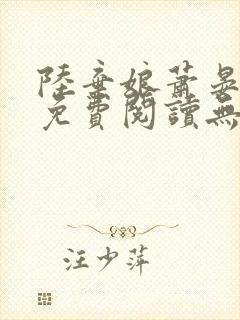 陸棄娘蕭晏
免費閱讀無
汪少萍